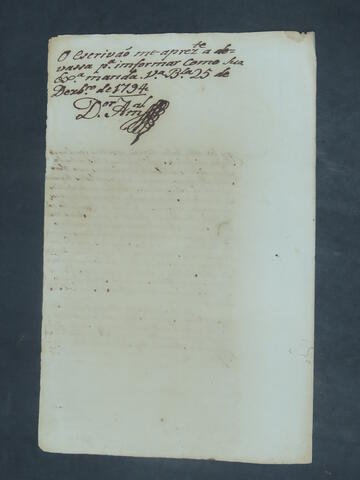 O Escrivão me aprezte a de-
vassa pa informar como Sua
Exa manda. Va Bla 25 de
Dezbro de 1794
Dor Aml